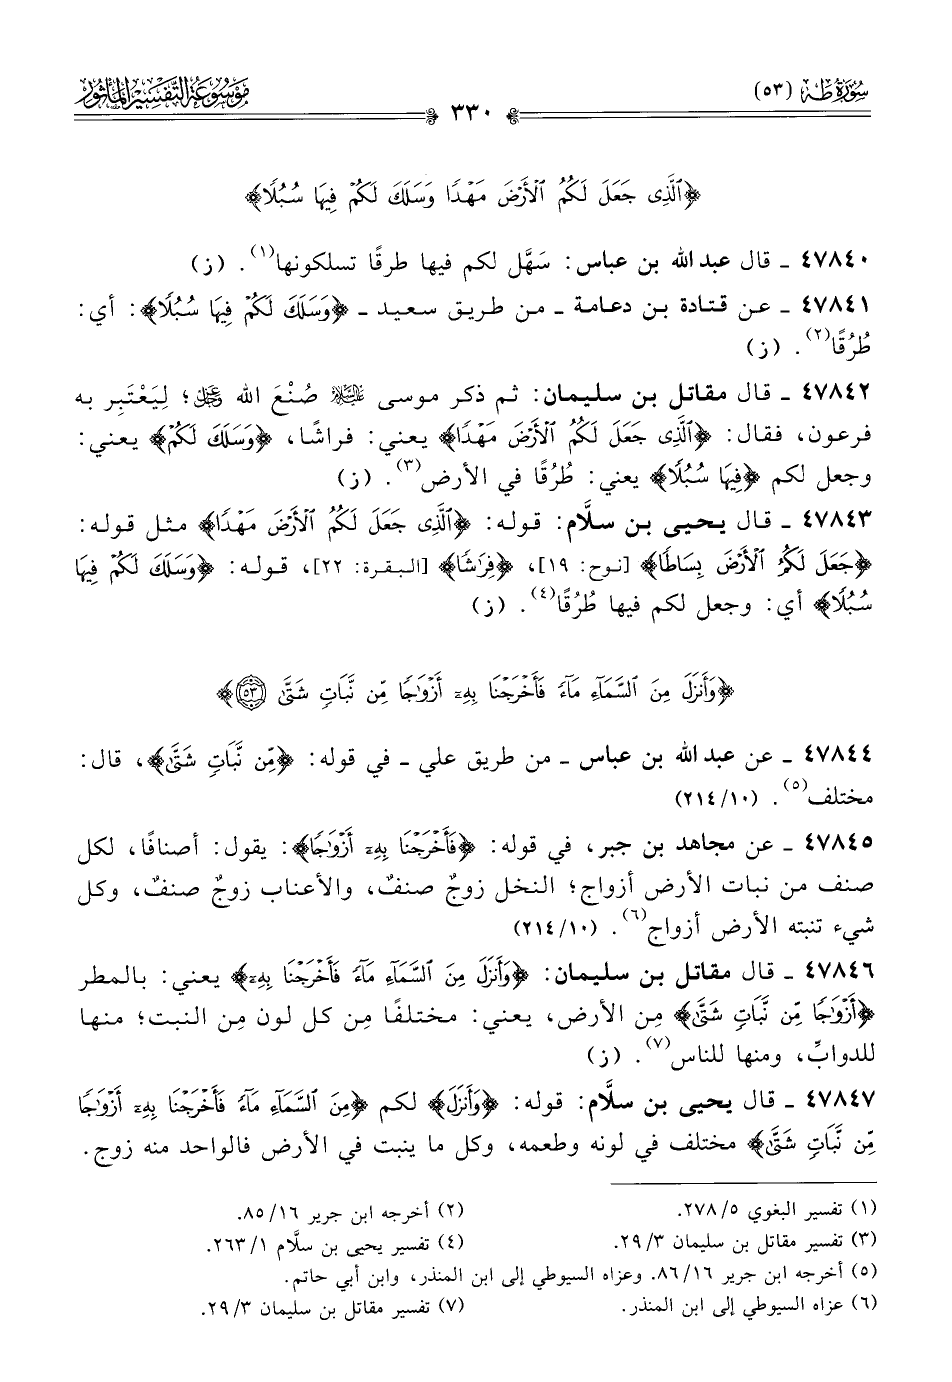 سُورَةُ طٰهٰ (٥٣)
مَوْسُوعَةُ التَّفْسِيرِ المَأْثُورِ
٣٣٠
﴿ٱلَّذِى جَعَلَ لَكُمُ ٱلْأَرْضَ مَهْدًا وَسَلَكَ لَكُمْ فِيهَا سُبُلًا﴾
٤٧٨٤٠ ـ قال عبد الله بن عباس: سَهَّل لكم فيها طرقًا تسلكونها(١). (ز)
٤٧٨٤١ ـ عن قتادة بن دعامة ـ من طريق سعيد ـ ﴿وَسَلَكَ لَكُمْ فِيهَا سُبُلًا﴾: أي:
طُرُقًا(٢). (ز)
٤٧٨٤٢ ـ قال مقاتل بن سليمان: ثم ذكر موسى عليه السلام صُنْعَ الله عز وجل؛ لِيَعْتَبِر به
فرعون، فقال: ﴿ٱلَّذِى جَعَلَ لَكُمُ ٱلْأَرْضَ مَهْدًا﴾ يعني: فراشًا، ﴿وَسَلَكَ لَكُمْ﴾ يعني:
وجعل لكم ﴿فِيهَا سُبُلًا﴾ يعني: طُرُقًا في الأرض(٣). (ز)
٤٧٨٤٣ ـ قال يحيى بن سلَّام: قوله: ﴿ٱلَّذِى جَعَلَ لَكُمُ ٱلْأَرْضَ مَهْدًا﴾ مثل قوله:
﴿جَعَلَ لَكُمُ ٱلْأَرْضَ بِسَاطًا﴾ [نوح: ١٩]، ﴿فِرَٰشًا﴾ [البقرة: ٢٢]، قوله: ﴿وَسَلَكَ لَكُمْ فِيهَا
سُبُلًا﴾ أي: وجعل لكم فيها طُرُقًا(٤). (ز)
﴿وَأَنزَلَ مِنَ ٱلسَّمَآءِ مَآءً فَأَخْرَجْنَا بِهِۦٓ أَزْوَٰجًا مِّن نَّبَاتٍ شَتَّىٰ ٥٣﴾
٤٧٨٤٤ ـ عن عبد الله بن عباس ـ من طريق علي ـ في قوله: ﴿مِّن نَّبَاتٍ شَتَّىٰ﴾، قال:
مختلف(٥). (٢١٤/١٠)
٤٧٨٤٥ ـ عن مجاهد بن جبر، في قوله: ﴿فَأَخْرَجْنَا بِهِۦٓ أَزْوَٰجًا﴾: يقول: أصنافًا، لكل
صنف من نبات الأرض أزواج؛ النخل زوجٌ صنفٌ، والأعناب زوجٌ صنفٌ، وكل
شيء تنبته الأرض أزواج(٦). (٢١٤/١٠)
٤٧٨٤٦ ـ قال مقاتل بن سليمان: ﴿وَأَنزَلَ مِنَ ٱلسَّمَآءِ مَآءً فَأَخْرَجْنَا بِهِۦٓ﴾ يعني: بالمطر
﴿أَزْوَٰجًا مِّن نَّبَاتٍ شَتَّىٰ﴾ مِن الأرض، يعني: مختلفًا مِن كل لون مِن النبت؛ منها
للدوابِّ، ومنها للناس(٧). (ز)
٤٧٨٤٧ ـ قال يحيى بن سلَّام: قوله: ﴿وَأَنزَلَ﴾ لكم ﴿مِنَ ٱلسَّمَآءِ مَآءً فَأَخْرَجْنَا بِهِۦٓ أَزْوَٰجًا
مِّن نَّبَاتٍ شَتَّىٰ﴾ مختلف في لونه وطعمه، وكل ما ينبت في الأرض فالواحد منه زوج.
(١) تفسير البغوي ٢٧٨/٥.
(٢) أخرجه ابن جرير ٨٥/١٦.
(٣) تفسير مقاتل بن سليمان ٢٩/٣.
(٤) تفسير يحيى بن سلَّام ٢٦٣/١.
(٥) أخرجه ابن جرير ٨٦/١٦. وعزاه السيوطي إلى ابن المنذر، وابن أبي حاتم.
(٦) عزاه السيوطي إلى ابن المنذر.
(٧) تفسير مقاتل بن سليمان ٢٩/٣.